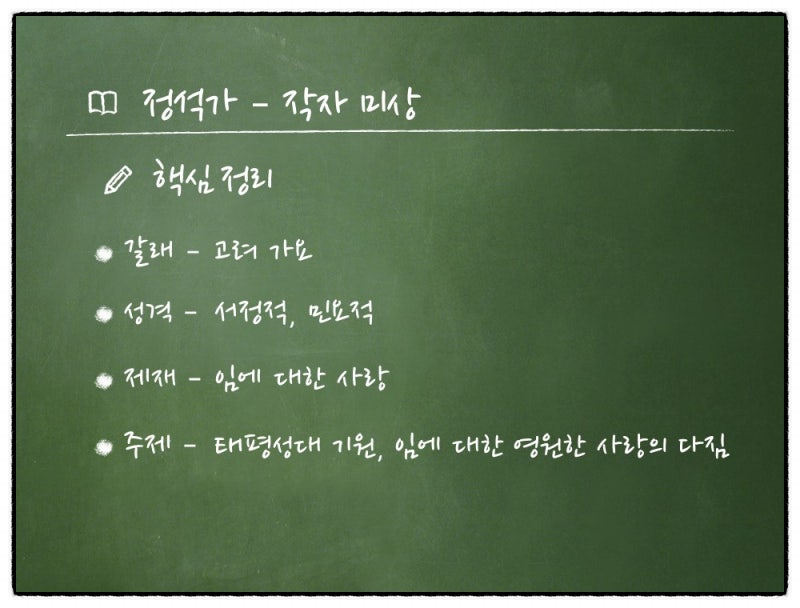 정석가 - 작자 미상
핵심 정리
갈래 - 고려 가요
성격 - 서정적, 민요적
제재 - 임에 대한 사랑
주제 - 태평성대 기원, 임에 대한 영원한 사랑의 다짐